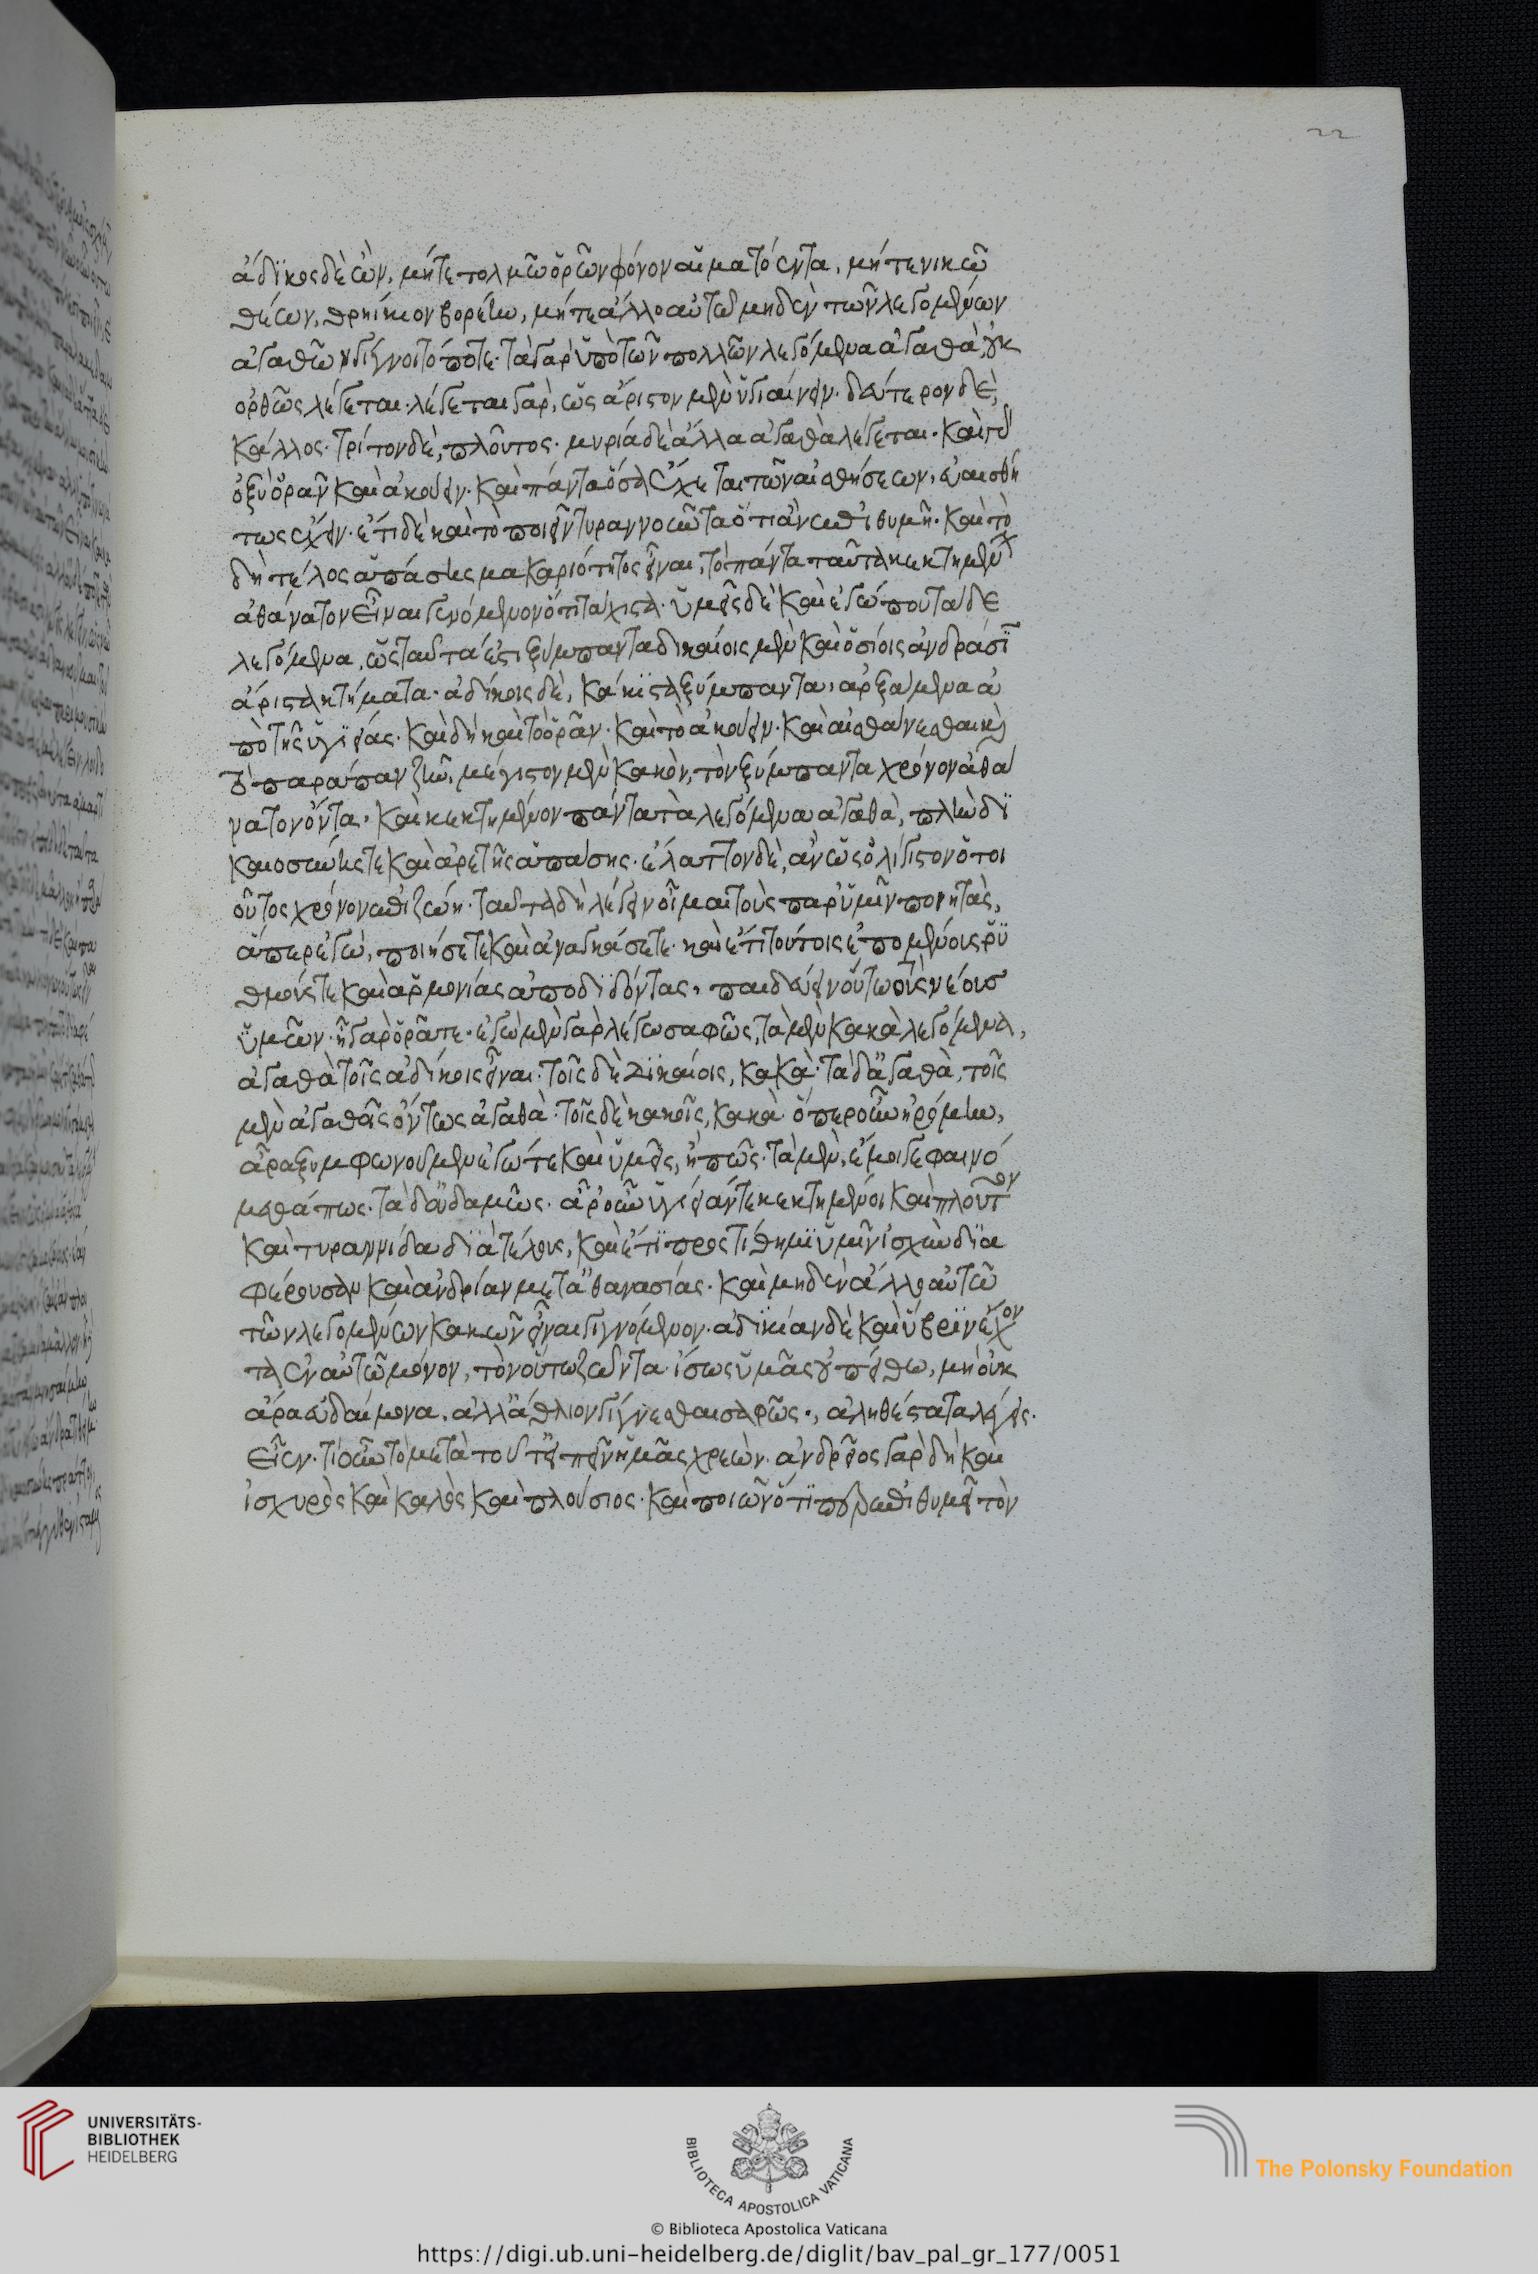 22
ἄδικος δὲ ὢν, μήτε τολμῶ ὁρῶν φόνον αἱματόεντα, μήτε νικῶ
θέων, θρηίκιον βορέην, μήτε ἄλλο αὐτῶ μηδὲν τῶν λεγομένων
ἀγαθῶν γίγνοιτό ποτε. τὰ γὰρ ὑπὸ τῶν πολλῶν λεγόμενα ἀγαθὰ, οὐκ
ὀρθῶς λέγεται. λέγεται γὰρ, ὡς ἄριστον μὲν ὑγιαίνειν. δεύτερον δὲ,
κάλλος. τρίτον δὲ, πλοῦτος. μυρία δὲ ἄλλα ἀγαθὰ λέγεται. καὶ γὰρ
ὀξὺ ὁρᾶν καὶ ἀκούειν. καὶ πάντα ὅσα ἔχεται τῶν αἰσθήσεων, εὐαισθή
τως ἔχειν. ἔτι δὲ καὶ τὸ ποιεῖν τυραννοῦντα ὅτι ἂν ἐπιθυμῆ. καὶ τὸ
δὴ τέλος ἁπάσης μακαριότητος εἶναι, τὸ πάντα ταῦτα κεκτημένον
ἀθάνατον εἶναι γενόμενον ὅτι τάχιστα. ὑμεῖς δὲ καὶ ἐγώ που τάδε
λέγόμενα, ὡς ταῦτά ἐστι ξύμπαντα δικαίοις μὲν καὶ ὁσίοις ἀνδράσι
ἄριστα κτήματα. ἀδίκοις δὲ, κάκιστα ξύμπαντα, ἀρξάμενα ἀ
πὸ τῆς ὑγιείας. καὶ δὴ καὶ τὸ ὁρᾶν. καὶ τὸ ἀκούειν. καὶ αἰσθάνεσθαι καὶ
τὸ παράπαν ζῆν, μέγιστον μὲν κακὸν, τὸν ξύμπαντα χρόνον ἀθά
νατον ὄντα. καὶ κεκτημένον πάντα τὰ λεγόμενα ἀγαθὰ, πλὴν δι
καιοσύνης τε καὶ ἀρετῆς ἁπάσης. ἔλαττον δὲ, ἂν ὡς ὀλίγιστον ὅτοι
οὗτος χρόνον ἐπιζώη. ταῦτα δὴ λέγειν οἶμαι τοὺς παρ' ὑμῖν ποιητὰς,
ἅπερ ἐγὼ, ποιήσετε καὶ ἀναγκάσετε. καὶ ἔτι τούτοις ἑπομένους ῥυ
θμούς τε καὶ ἁρμονίας ἀποδιδόντας, παιδεύειν οὕτω τοὺς νέους
ὑμῶν. ἦ γὰρ ὁρᾶτε. ἐγὼ μὲν γὰρ λέγω σαφῶς, τὰ μὲν κακὰ λεγόμενα,
ἀγαθὰ τοῖς ἀδίκοις εἶναι. τοῖς δὲ δικαίοις, κακὰ. τὰ δ' ἀγαθὰ, τοῖς
μὲν ἀγαθοῖς ὄντως ἀγαθὰ. τοῖς δὲ κακοῖς, κακὰ. ὅπερ οὖν ἠρόμην,
ἆρα ξυμφωνοῦμεν ἐγώ τε καὶ ὑμεῖς, ἢ πῶς. τὰ μὲν, ἔμοιγε φαινό
μεθά πως. τὰ δ' οὐδαμῶς. ἆρ' οὖν ὑγιείαν τε κεκτημένον καὶ πλοῦτον
καὶ τυραννίδα διὰ τέλους, καὶ ἔτι προστίθημι ὑμῖν ἰσχὺν δια
φέρουσαν καὶ ἀνδρίαν μετ' ἀθανασίας. καὶ μηδὲν ἄλλο αὐτῶ
τῶν λεγομένων κακῶν εἶναι γιγνόμενον. ἀδικίαν δὲ καὶ ὕβριν ἔχον
τα ἐν αὐτῶ μόνον, τὸν οὕτω ζῶντα ἴσως ὑμᾶς οὐ πείθω, μὴ οὐκ
ἄρα εὐδαίμονα, ἀλλ' ἄθλιον γίγνεσθαι σαφῶς., ἀληθέστατα λέγεις.
εἶεν. τί οὖν τὸ μετὰ τοῦτ' εἰπεῖν ἡμᾶς χρεὼν. ἀνδρεῖος γὰρ δὴ καὶ
ἰσχυρὸς καὶ καλὸς καὶ πλούσιος. καὶ ποιῶν ὅτι περ ἐπιθυμεῖ τὸν
UNIVERSITÄTS-
BIBLIOTHEK
HEIDELBERG
BIBLIOTECA APOSTOLICA VATICANA
The Polonsky Foundation
© Biblioteca Apostolica Vaticana
https://digi.ub.uni-heidelberg.de/diglit/bav_pal_gr_177/0051